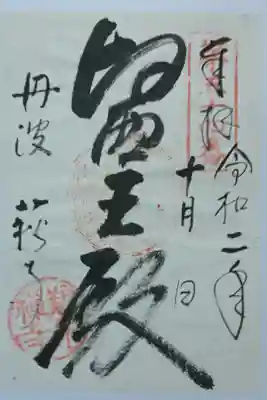 奉拝
令和二年
十月 日
醫王殿
丹波 萩寺